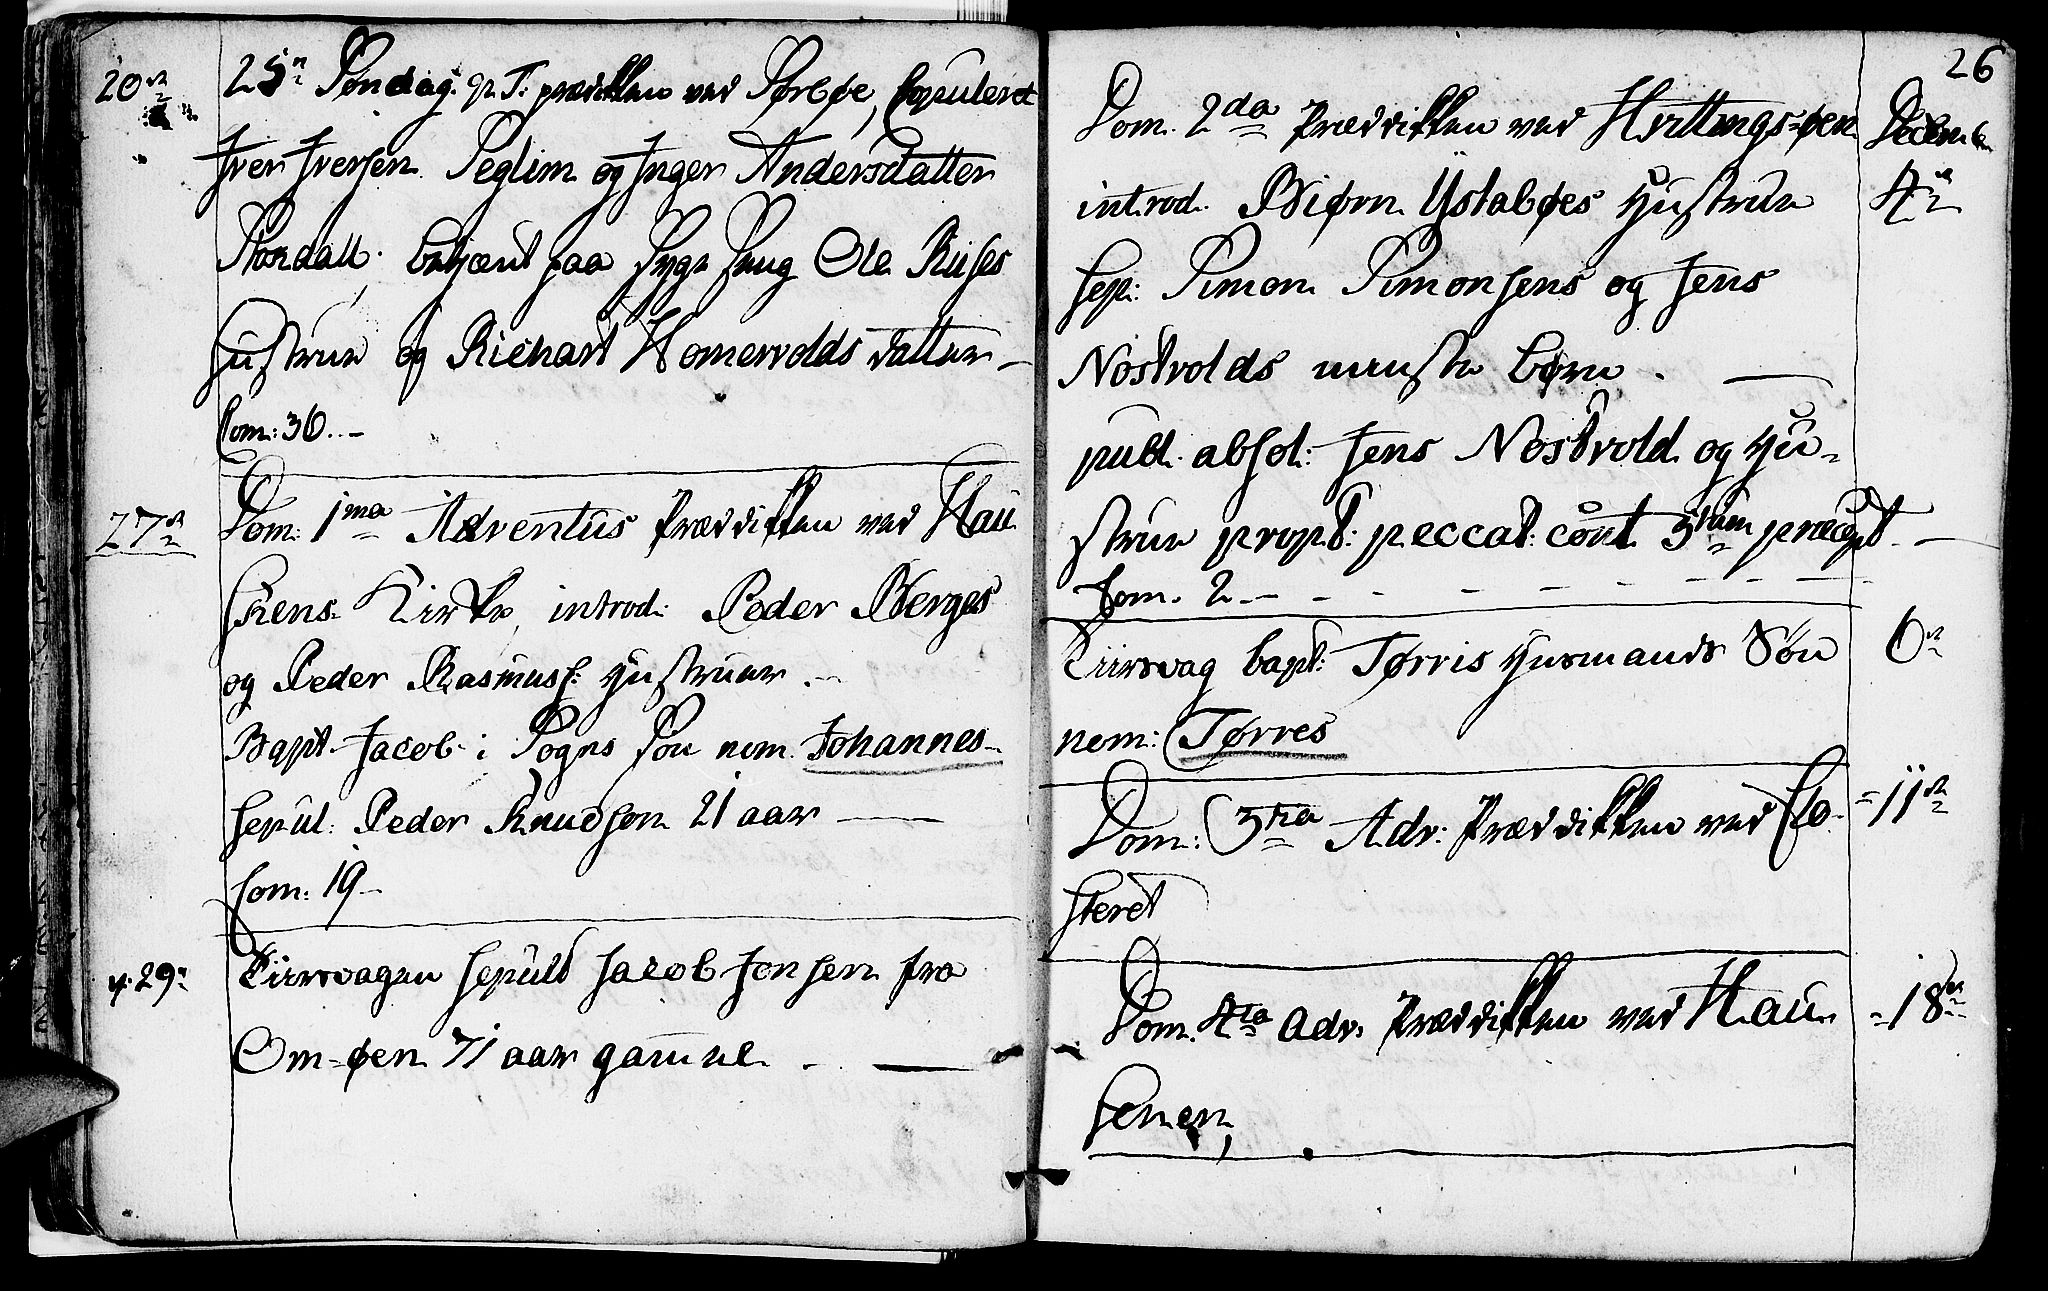 20de 25n Søndag p. T: prædikken ved Sørbøe, Copuleret
Iver Iversen Seglim og Inger Andersdatter
Nordall. betjent paa Syge Seng Ole Riises
Hustrue og Richart Homervolds datter –
Com: 36. –
27de Dom: 1ma Adventus Prædikken ved Hau
skens Kirke, introd: Peder Berges
og Peder Rasmuss: Hustruer. –
Bapt. Jacob i Sogns Søn nom. Johannes
sepul: Peder Knudsøn 21 aar —
Com: 19 –
d. 29: Tiirsdagen sepult Jacob Jonsen fra
Om-øen 71 aar gammel. —
26
Dom. 2da Prædikken ved Hvittings-øen Decemb.
introd. Biørn Ystabøes Hustrue 4de
sep: Simon Simonsens og Jens
Nostvolds næuste børn. —
publ. absol: Jens Nostvold og Hu-
strue propt: peccat: cont. 3tium præcept. —
Com. 2 –
Tiirsdag bapt: Tørris Husmands Søn 6de
nom: Tørres
Dom: 3tia Adv: Prædikken ved Clo- 11de
steret
Dom. 4ta Adv. Prædikken ved Hau 18de
schenen,